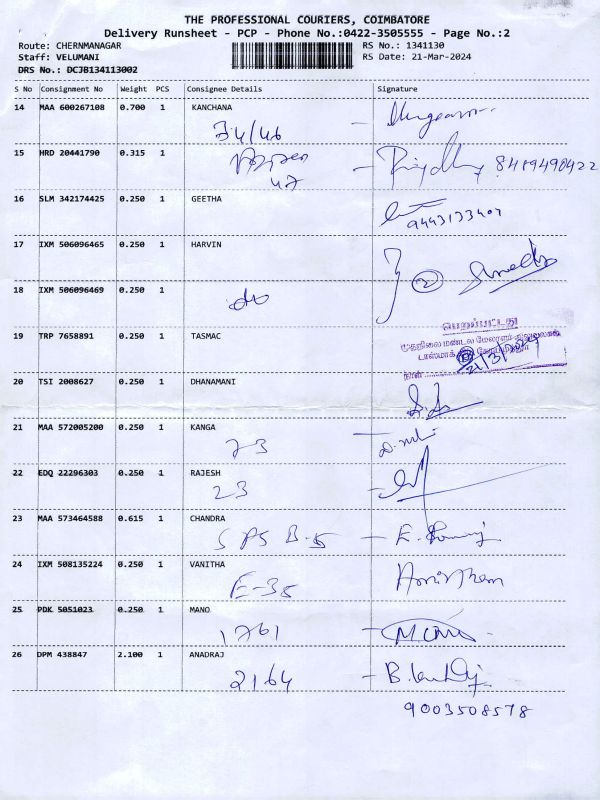 THE PROFESSIONAL COURIERS, COIMBATORE
Delivery Runsheet - PCP - Phone No.:0422-3505555 - Page No.:2
Route: CHERNMANAGAR RS No.: 1341130
Staff: VELUMANI RS Date: 21-Mar-2024
DRS No.: DCJB134113002
S No Consignment No Weight PCS Consignee Details Signature
14 MAA 600267108 0.700 1 KANCHANA
34/46
15 HRD 20441790 0.315 1
47 8489490422
16 SLM 342174425 0.250 1 GEETHA
9443133407
17 IXM 506096465 0.250 1 HARVIN
2
18 IXM 506096469 0.250 1
do
19 TRP 7658891 0.250 1 TASMAC
பெறப்பட்டது
21/3/2024
20 TSI 2008627 0.250 1 DHANAMANI
21 MAA 572005200 0.250 1 KANGA
23
22 EDQ 22296303 0.250 1 RAJESH
23
23 MAA 573464588 0.615 1 CHANDRA
SPS B-5
24 IXM 508135224 0.250 1 VANITHA
E-35
25 PDK 5051023 0.250 1 MANO
1761
26 DPM 438847 2.100 1 ANADRAJ
2164
9003508578